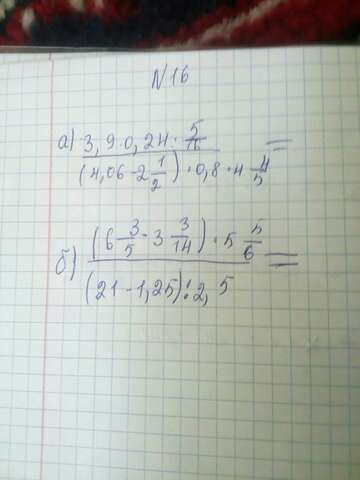 №16
а) 3,9·0,24·5/16 =
(4,06-2 1/2)·0,8·4 4/5
б) (6 3/5-3 3/14)·5 5/6 =
(21-1,25):2,5